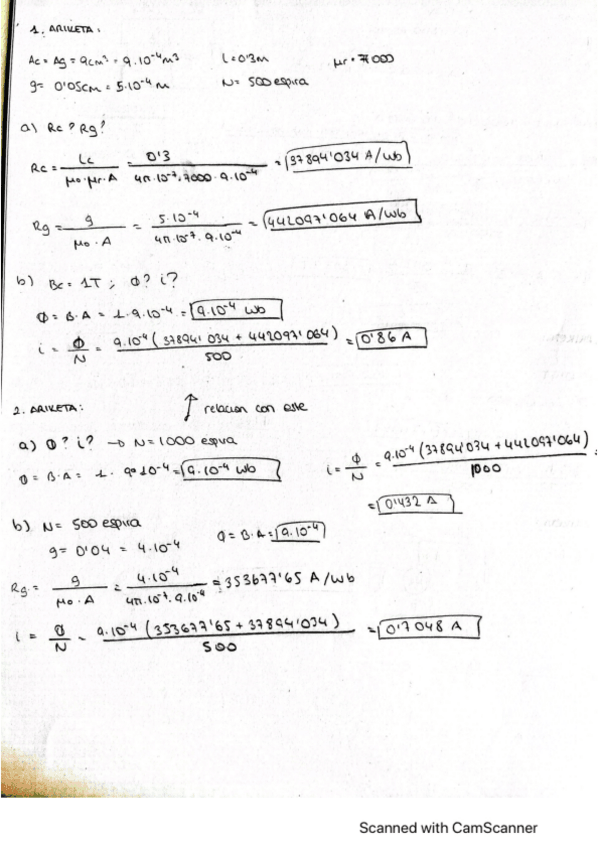 1. ARIKETA:
Ac = Ag = 9cm² = 9·10⁻⁴ m² l = 0'3m μr = 7000
g = 0'05cm = 5·10⁻⁴ m N = 500 espira
a) Rc? Rg?
Rc = Lc / μo·μr·A = 0'3 / 4π·10⁻⁷·7000·9·10⁻⁴ = 37894'034 A/Wb
Rg = g / μo·A = 5·10⁻⁴ / 4π·10⁻⁷·9·10⁻⁴ = 442097'064 A/Wb
b) Bc = 1T; Φ? i?
Φ = B·A = 1·9·10⁻⁴ = 9·10⁻⁴ Wb
i = Φ / N = 9·10⁻⁴ (37894'034 + 442097'064) / 500 = 0'86 A
2. ARIKETA: ↑ relacion con este
a) Φ? i? → N = 1000 espira
Φ = B·A = 1·9·10⁻⁴ = 9·10⁻⁴ Wb
i = Φ / N = 9·10⁻⁴ (37894'034 + 442097'064) / 1000 =
= 0'432 A
b) N = 500 espira Φ = B·A = 9·10⁻⁴
g = 0'04 = 4·10⁻⁴
Rg = g / μo·A = 4·10⁻⁴ / 4π·10⁻⁷·9·10⁻⁴ = 353677'65 A/Wb
i = Φ / N = 9·10⁻⁴ (353677'65 + 37894'034) / 500 = 0'7048 A
Scanned with CamScanner